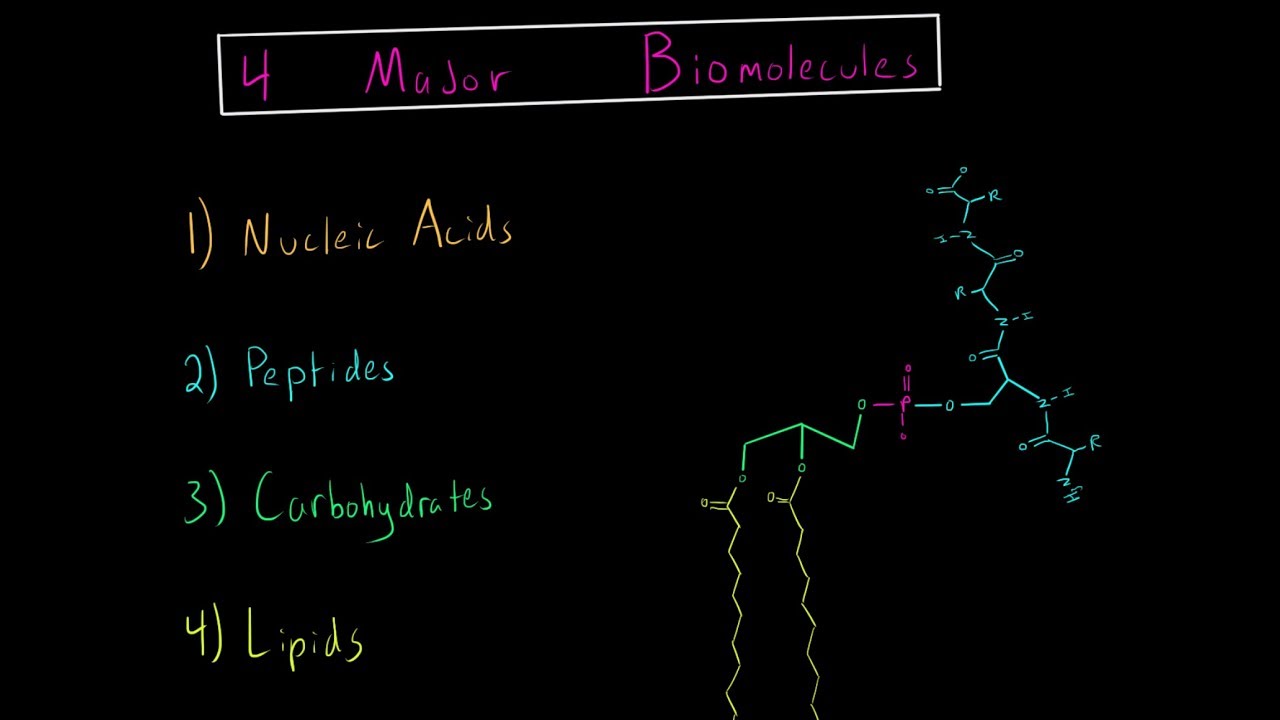 4 Major Biomolecules
1) Nucleic Acids
2) Peptides
3) Carbohydrates
4) Lipids
O
O R
H-N
O
R
N-H
O
O
O P O N-H
O
O R
N
H
O O
O O